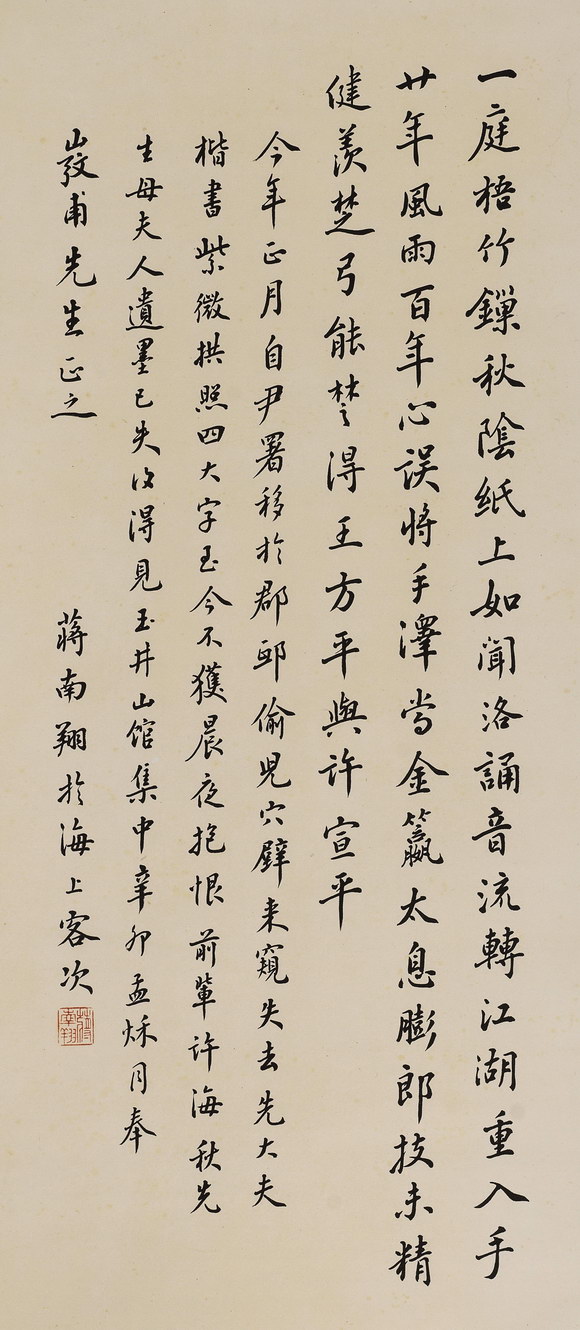 一庭梧竹鏁秋陰紙上如聞洛誦音流轉江湖重入手
廿年風雨百年心誤將手澤當金籯太息膨郎技未精
健羨楚弓能楚得王方平與許宣平
今年正月自尹署移於郡邸偷兒穴壁来窺失去先大夫
楷書紫微拱照四大字至今不獲晨夜抱恨前輩許海秋先
生母夫人遺墨已失復得見玉井山館集中辛卯孟秌月奉
甫先生正之
蔣南翔於海上客次